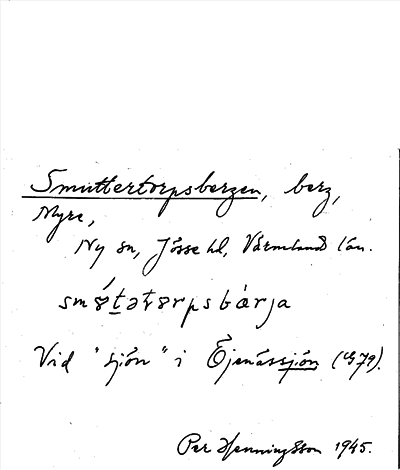 Smuttertorpsbergen, berg,
Myre,
Ny sn, Jösse hd, Värmland län.
Vid "sjön" i Öjenässjön (G79).
Per Henningsson 1945.